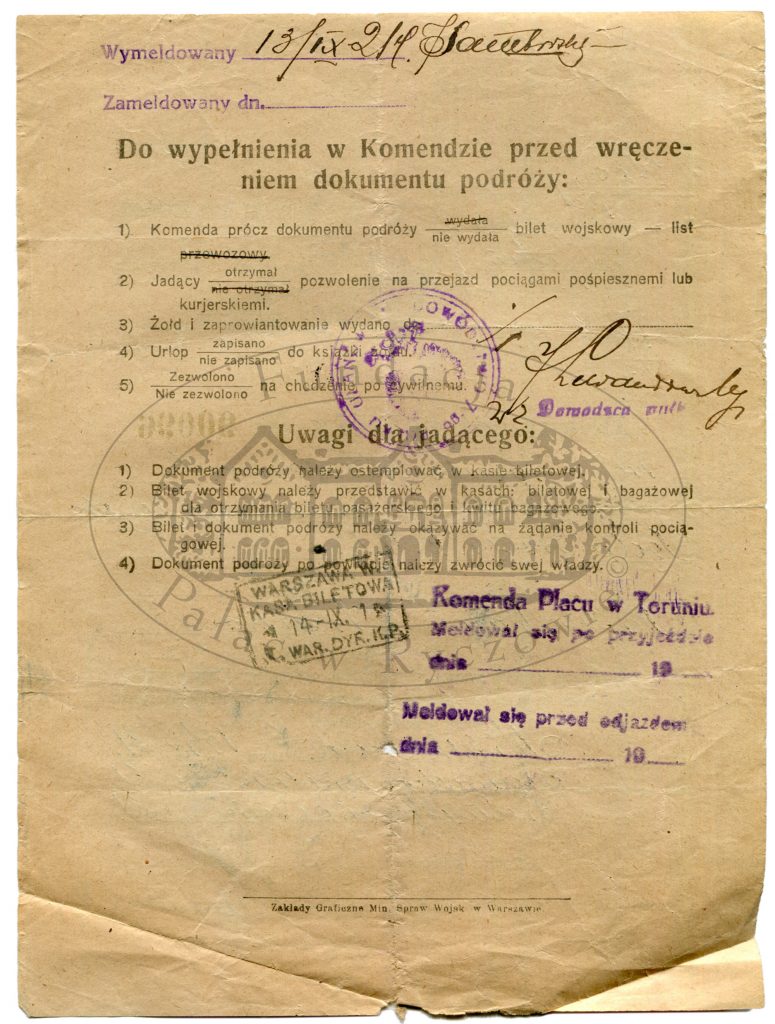 Wymeldowany 13/IX 21
Zameldowany dn.
Do wypełnienia w Komendzie przed wręcze-
niem dokumentu podróży:
1) Komenda prócz dokumentu podróży wydała
nie wydała bilet wojskowy — list
przewozowy.
2) Jadący otrzymał
nie otrzymał pozwolenie na przejazd pociągami pośpiesznemi lub
kurjerskiemi.
3) Żołd i zaprowiantowanie wydano do
4) Urlop zapisano
nie zapisano do książki
5) Zezwolono
Nie zezwolono na chodzenie po cywilnemu.
Dowódca pułk
Uwagi dla jadącego:
1) Dokument podróży należy ostemplować w kasie biletowej.
2) Bilet wojskowy należy przedstawić w kasach: biletowej i bagażowej
dla otrzymania biletu pasażerskiego i kwitu bagażowego.
3) Bilet i dokument podróży należy okazywać na żądanie kontroli pocią-
gowej.
4) Dokument podróży po powrocie należy zwrócić swej władzy.
WARSZAWA
KASA BILETOWA
14-IX.
WAR. DYR. K.P.
Fundacja
Pałac w Ryczowie ©
Komenda Placu w Toruniu
Meldował się po przyjeździe
dnia 19
Meldował się przed odjazdem
dnia 19
Zakłady Graficzne Min. Spraw Wojsk w Warszawie